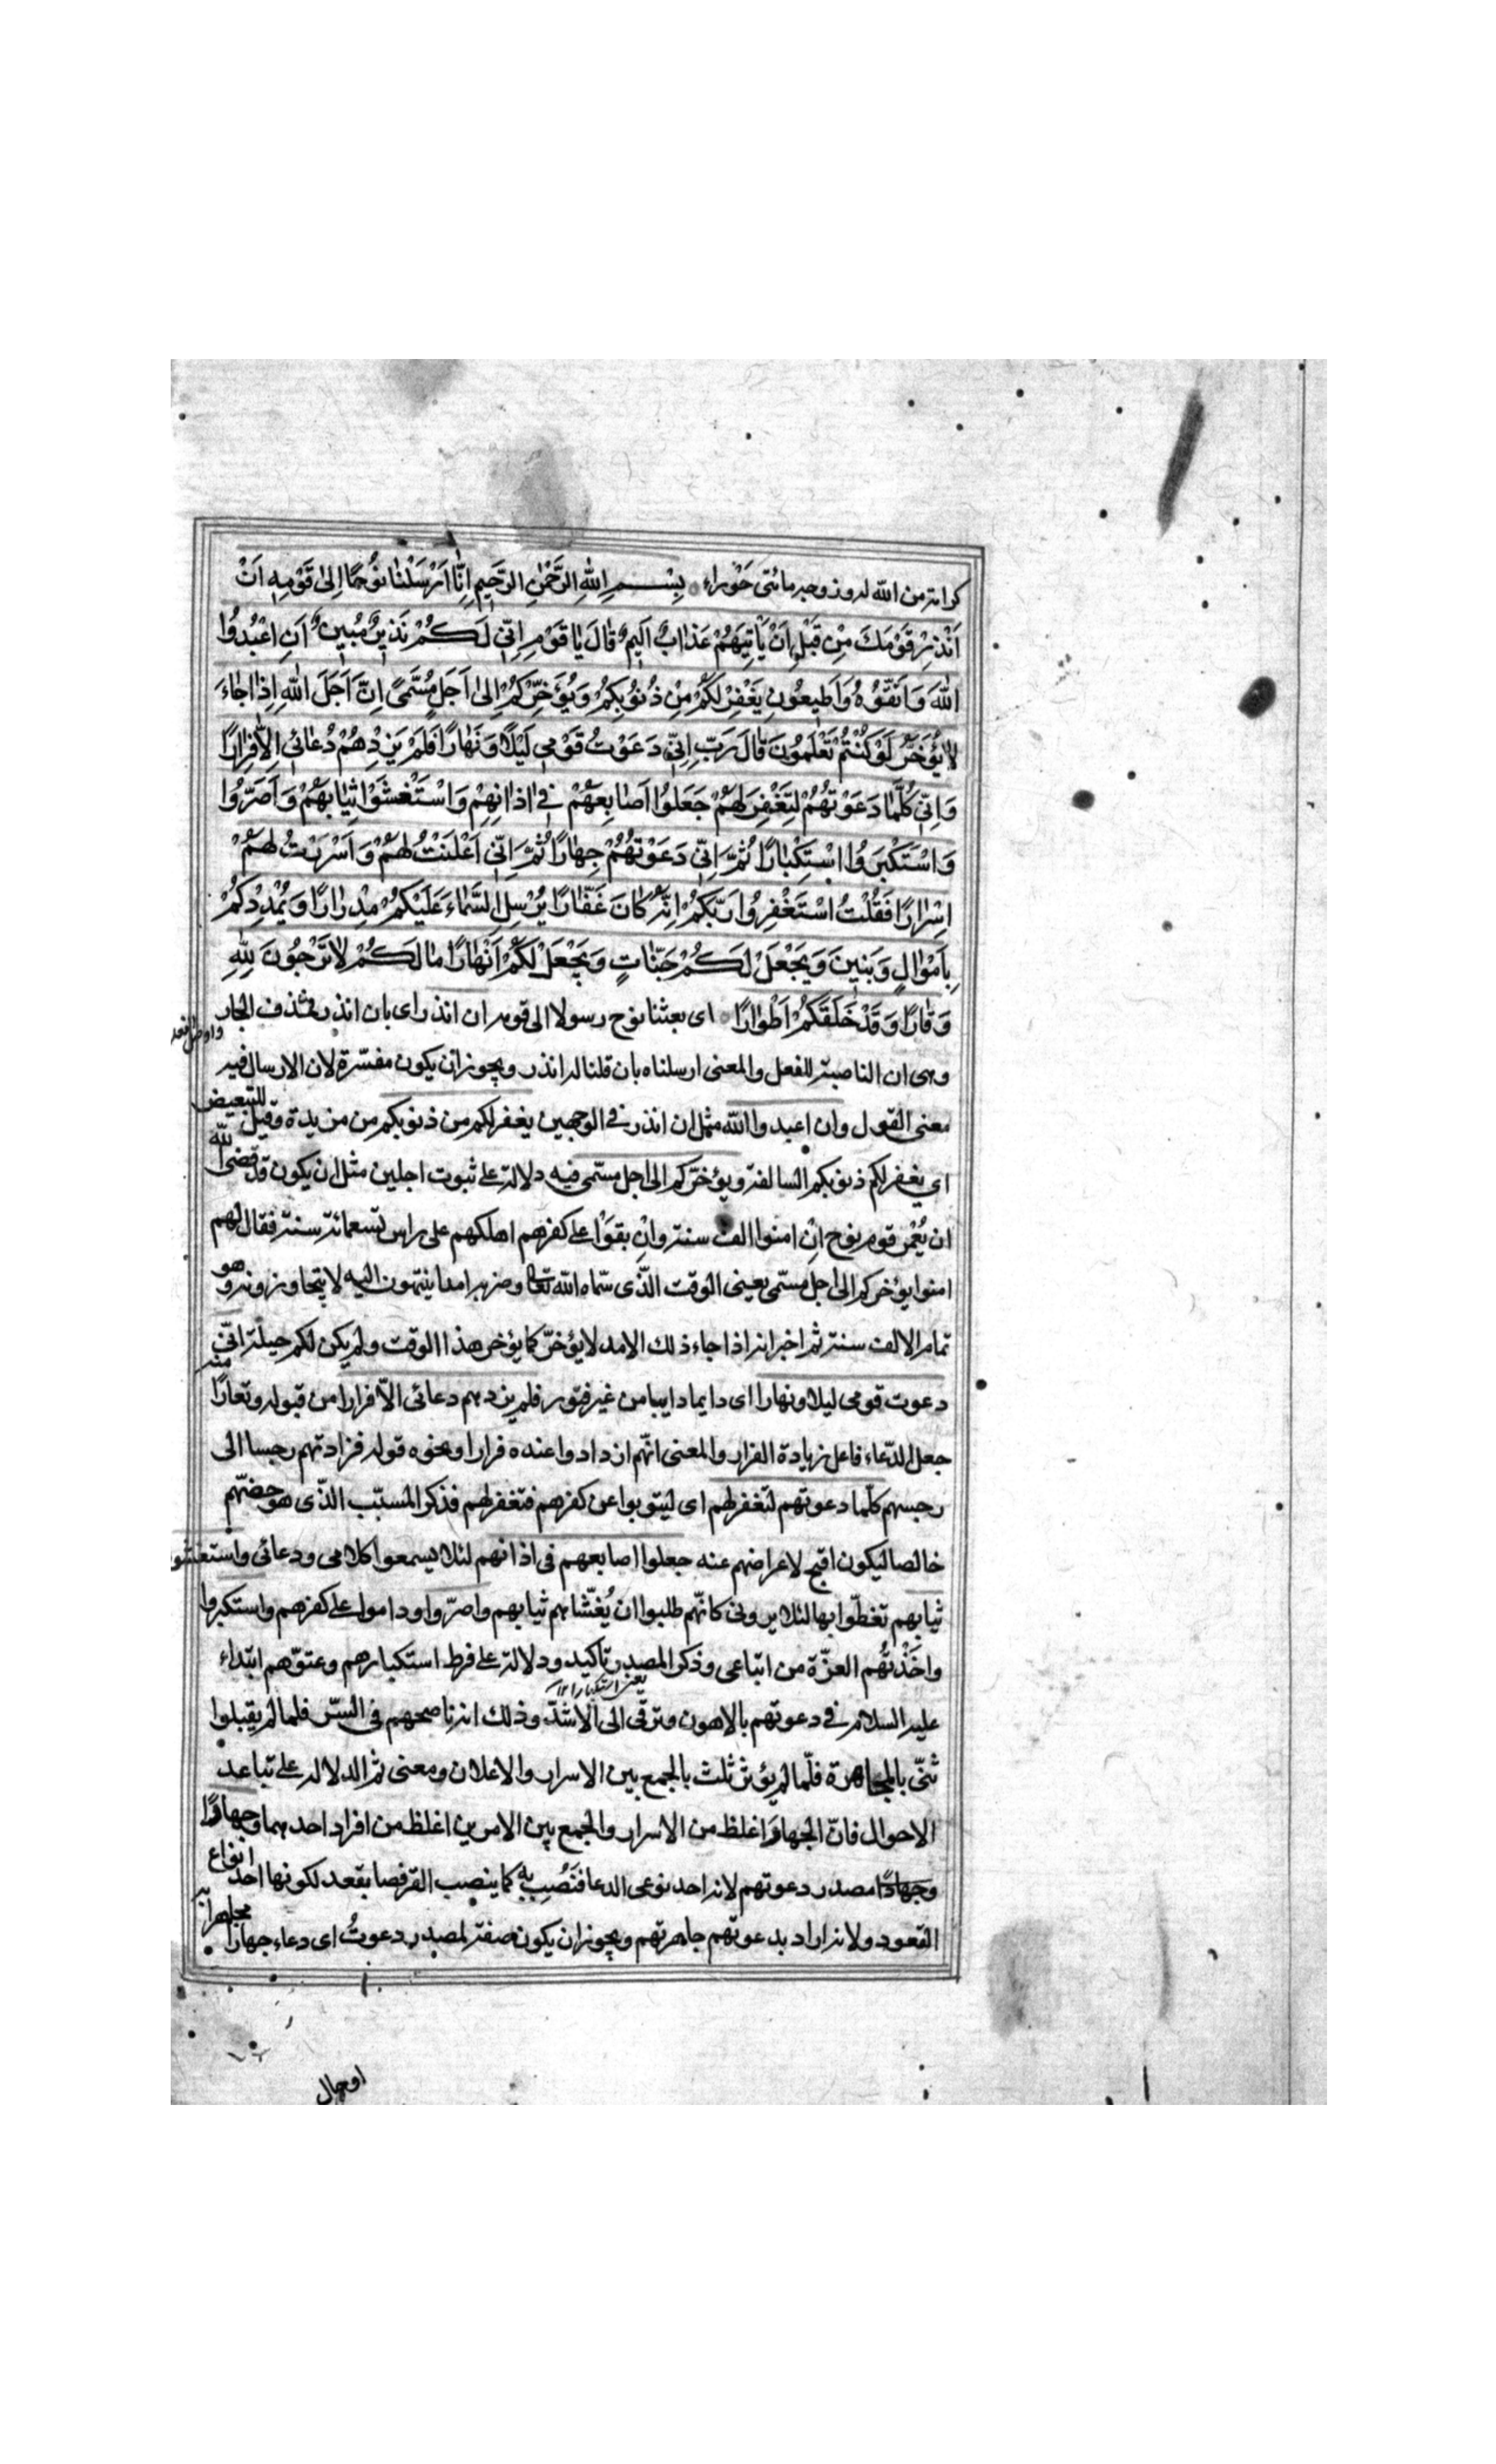 كرامة من الله له وزوجه مائتى حوراء بِسْمِ اللهِ الرَّحْمٰنِ الرَّحِيمِ اِنَّا اَرْسَلْنَا نُوحًا اِلىٰ قَوْمِهٖ اَنْ
اَنْذِرْ قَوْمَكَ مِنْ قَبْلِ اَنْ يَأْتِيَهُمْ عَذَابٌ اَلِيمٌ قَالَ يَا قَوْمِ اِنّىِ لَكُمْ نَذِيرٌ مُبِينٌ اَنِ اعْبُدُوا
اللهَ وَاتَّقُوهُ وَاَطِيعُونِ يَغْفِرْ لَكُمْ مِنْ ذُنُوبِكُمْ وَيُؤَخِّرْكُمْ اِلىٰ اَجَلٍ مُسَمّىً اِنَّ اَجَلَ اللهِ اِذَا جَاءَ
لَا يُؤَخَّرُ لَوْ كُنْتُمْ تَعْلَمُونَ قَالَ رَبِّ اِنّىِ دَعَوْتُ قَوْمِى لَيْلًا وَنَهَارًا فَلَمْ يَزِدْهُمْ دُعَائِى اِلَّا فِرَارًا
وَاِنّىِ كُلَّمَا دَعَوْتُهُمْ لِتَغْفِرَ لَهُمْ جَعَلُوا اَصَابِعَهُمْ فِى اٰذَانِهِمْ وَاسْتَغْشَوْا ثِيَابَهُمْ وَاَصَرُّوا
وَاسْتَكْبَرُوا اسْتِكْبَارًا ثُمَّ اِنّىِ دَعَوْتُهُمْ جِهَارًا ثُمَّ اِنّىِ اَعْلَنْتُ لَهُمْ وَاَسْرَرْتُ لَهُمْ
اِسْرَارًا فَقُلْتُ اسْتَغْفِرُوا رَبَّكُمْ اِنَّهُ كَانَ غَفَّارًا يُرْسِلِ السَّمَاءَ عَلَيْكُمْ مِدْرَارًا وَيُمْدِدْكُمْ
بِاَمْوَالٍ وَبَنِينَ وَيَجْعَلْ لَكُمْ جَنَّاتٍ وَيَجْعَلْ لَكُمْ اَنْهَارًا مَا لَكُمْ لَا تَرْجُونَ لِلّٰهِ
وَقَارًا وَقَدْ خَلَقَكُمْ اَطْوَارًا اى بعثنا نوح رسولا الى قومه ان انذر اى بان انذر فحذف الجار
وهى ان الناصبة للفعل والمعنى ارسلناه بان قلنا له انذر ويجوز ان يكون مفسّرة لان الارسال فيه
معنى القول وان اعبدوا الله مثل ان انذر فى الوجهين يغفر لكم من ذنوبكم من مزيدة وقيل للتبعيض
اى يغفر لكم ذنوبكم السالفة ويؤخّركم الى اجل مسمّى فيه دلالة على ثبوت اجلين مثل ان يكون قد قضى الله
ان يُعْمر قوم نوح اِنْ امنوا الف سنة واِنْ بقوْا على كفرهم اهلكهم على راس تسعمائة سنة فقال لهم
امنوا يؤخركم الى اجل مسمّى يعنى الوقت الّذى سمّاه الله تعا وضربه امدا ينتهون اليه لا يتجاوزونه وهو
تمام الالف سنة ثم اخبر انه اذا جاء ذلك الامد لا يؤخّر كما يؤخر هذا الوقت ولم يكن لكم حيلة انّى
دعوت قومى ليلا ونهارا اى دايما دايبا من غير فتور فلم يزدهم دعائى الّا فرارا من قبوله ونفارًا منه
جعل الدّعاء فاعل زيادة الفرار والمعنى انّهم ازدادوا عنده فرارا ونحوه قوله فزادتهم رجسا الى
رجسهم كلّما دعوتهم لتغفر لهم اى ليتوبوا عن كفرهم فتغفر لهم فذكر المسبّب الّذى هو حضّهم
خالصا ليكون اقبح لاعراضهم عنه جعلوا اصابعهم فى اذانهم لئلا يسمعوا كلامى ودعائى واستغشوا
ثيابهم تغطّوا بها لئلا يرونى كانّهم طلبوا ان يُغَشّاهم ثيابهم واصرّوا وداموا على كفرهم واستكبروا
واخَذْتُهم العزّة من اتباعى وذكر المصدر تأكيد ودلالة على فرط استكبارهم وعتوّهم ابتداء
عليه السلام فى دعوتهم بالاهون وترقّى الى الاشدّ وذلك انه ناصحهم فى السّر فلما لم يقبلوا
ثنّى بالمجاهرة فلّما لم يؤثر ثلث بالجمع بين الاسرار والاعلان ومعنى ثم الدلالة على تباعد
الاحوال فانّ الجهار اغلظ من الاسرار والجمع بين الامرين اغلظ من افراد احدهما وجهارًا
مصدر دعوتهم لانه احد نوعى الدعا فنُصِب به كما ينصب القرفصا بقعد لكونها احد انواع
القعود ولانه اراد بدعوتهم جاهرتهم ويجوز ان يكون صفة لمصدر دعوتُ اى دعاء جهارا مجاهرا به